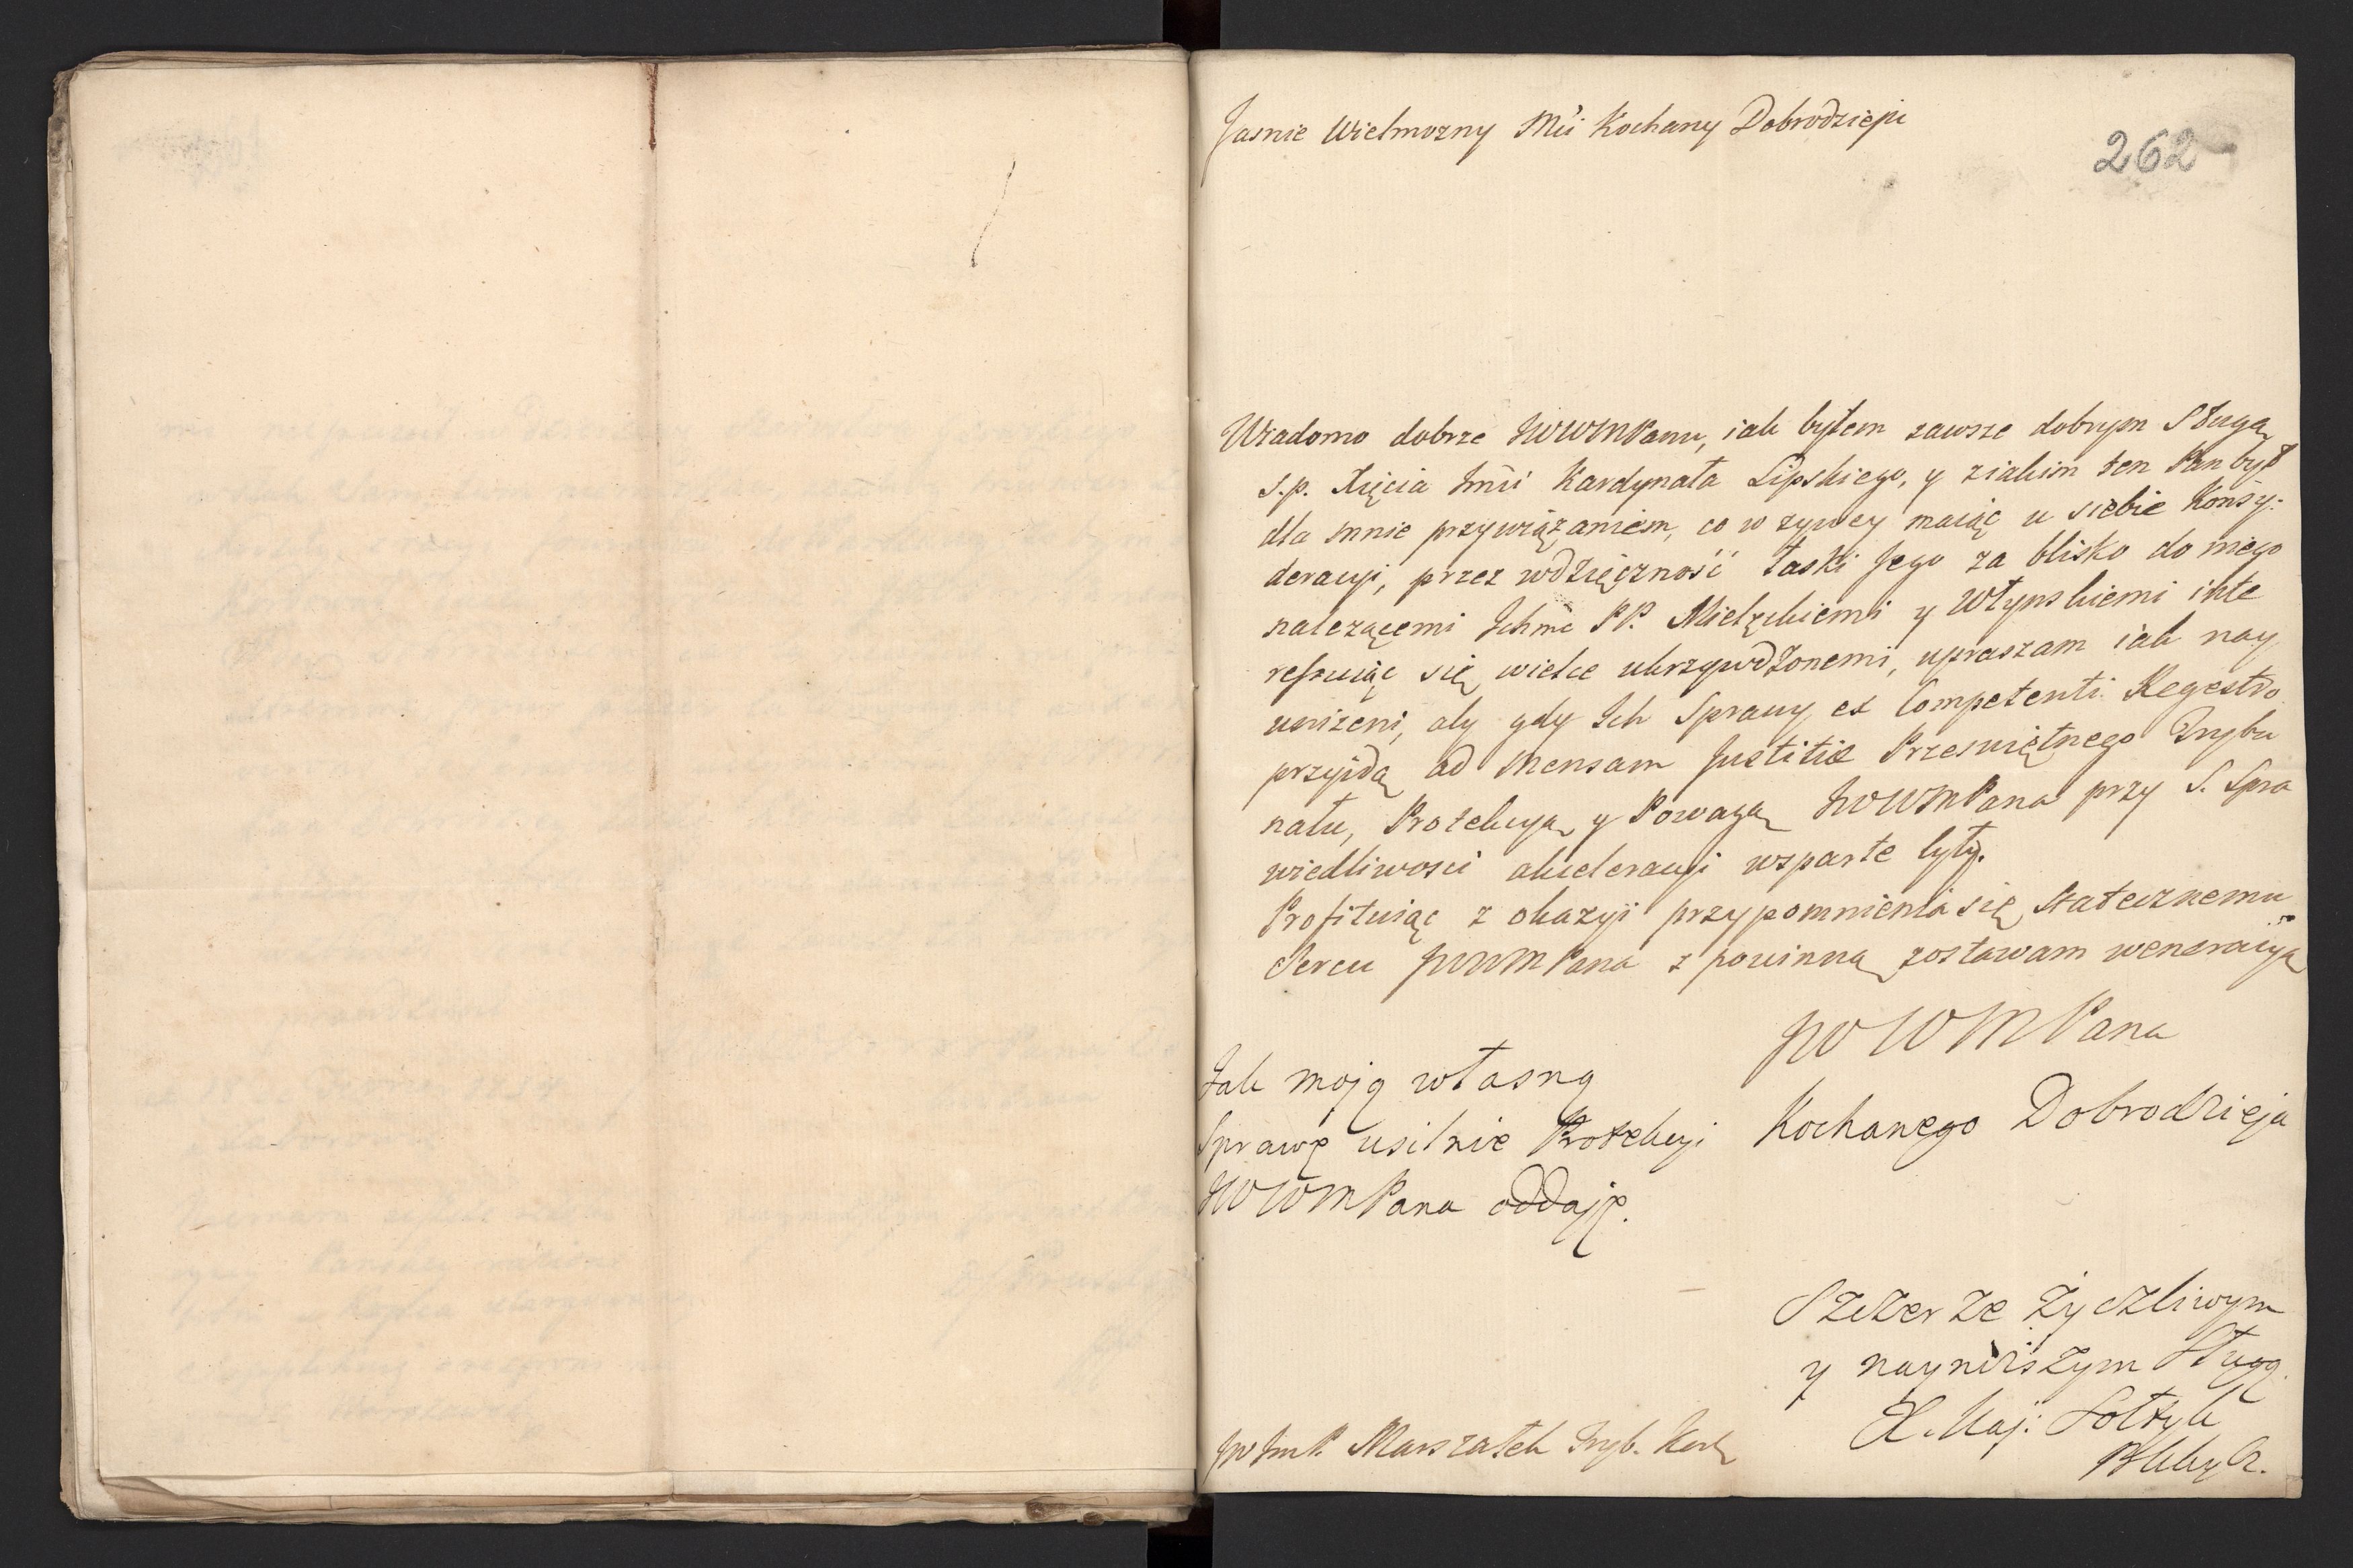 Jasnie Wielmozny Mći Kochany Dobrodzieju
262
Wiadomo dobrze JWWMPanu, iak byłem zawsze dobrym Sługą
s.p. Xięcia Jmći Kardynała Lipskiego, y ziakim ten Pan był
dla mnie przywiązaniem, co w zywey maiąc u siebie Konsy-
deracyi, przez wdzięczność łaski Jego za blisko do niego
nalezącemi Ichmć PP. Mielżckiemi y Włynskiemi inte
ressuiąc się wielce ukrzywdzonemi, upraszam iak nay
unizeni, aby gdy Ich Sprawy ex Competenti Regestro
przyidą ad Mensam Justitiæ Przeswiętnego Trybu
nału, Protekcyą y Powagą JWWMPana przy S. Spra
wiedliwosci akceleracyi wsparte były.
Profituiąc z okazyi przypomnienia się statecznemu
Sercu JWWMPana z powinną zostawam weneracyą
JWWMPana
Kochanego Dobrodzieja
Jak moją własną
Sprawę usilnie Protekcyi
JWWMPana oddaję.
Szczerze Życzliwym
y nayniższym Sługą
X. Kaj: Sołtyk
JW JmP. Marszałek Tryb. Kor